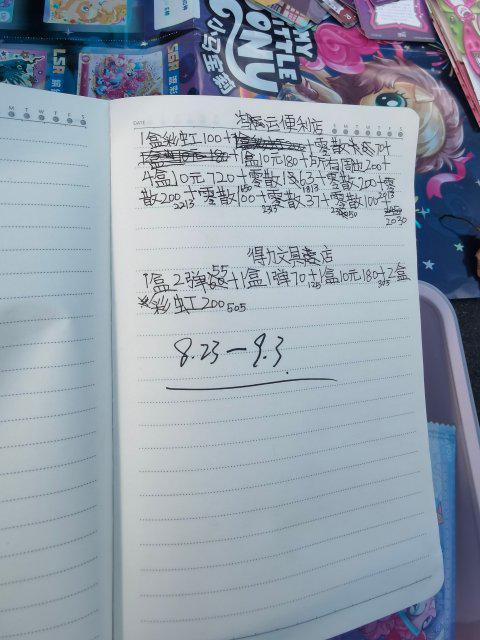 MY LITTLE PONY
小马宝莉
LSR
SGR
M T W T F S
DATE
S M T W T F S
便利店
1盒彩虹100+
+零散
+1盒10元180+所有周边200+
4盒10元720+零散163+零散200+零
1650
1813
2013
散200+零散100+零散37+零散100+
2213
2313
2030
得力文具商店
1盒2弹55+1盒1弹70+1盒10元180+2盒
125
305
彩虹200 505
8.23—9.3